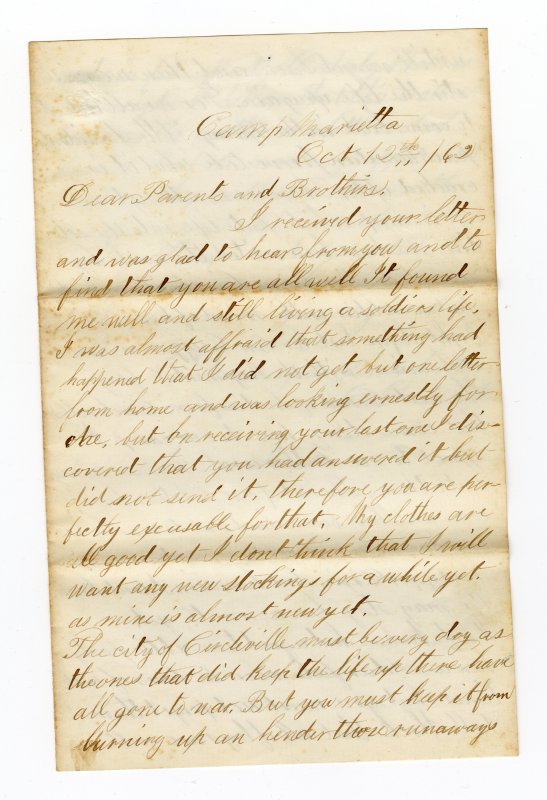 Camp Marietta
Oct 12th /62
Dear Parents and Brothirs,
I received your letter
and was glad to hear from you and to
find that you are all well It found
me well and still living a soldiers life,
I was almost affraid that something had
happened that I did not get but one letter
from home and was looking ernestly for
one, but on receiving your last one I dis-
covered that you had answered it but
did not send it, therefore you are per-
fictly excusable for that. My clothes are
all good yet I dont think that I will
want any new stockings for a while yet.
as mine is almost new yet.
The city of Circleville must be very dog as
the ones that did keep the life up there have
all gone to war. But you must keep it from
burning up an hender those runaways